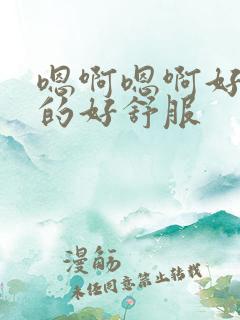 嗯啊嗯啊好
的好舒服
漫觞
未经同意禁止转载